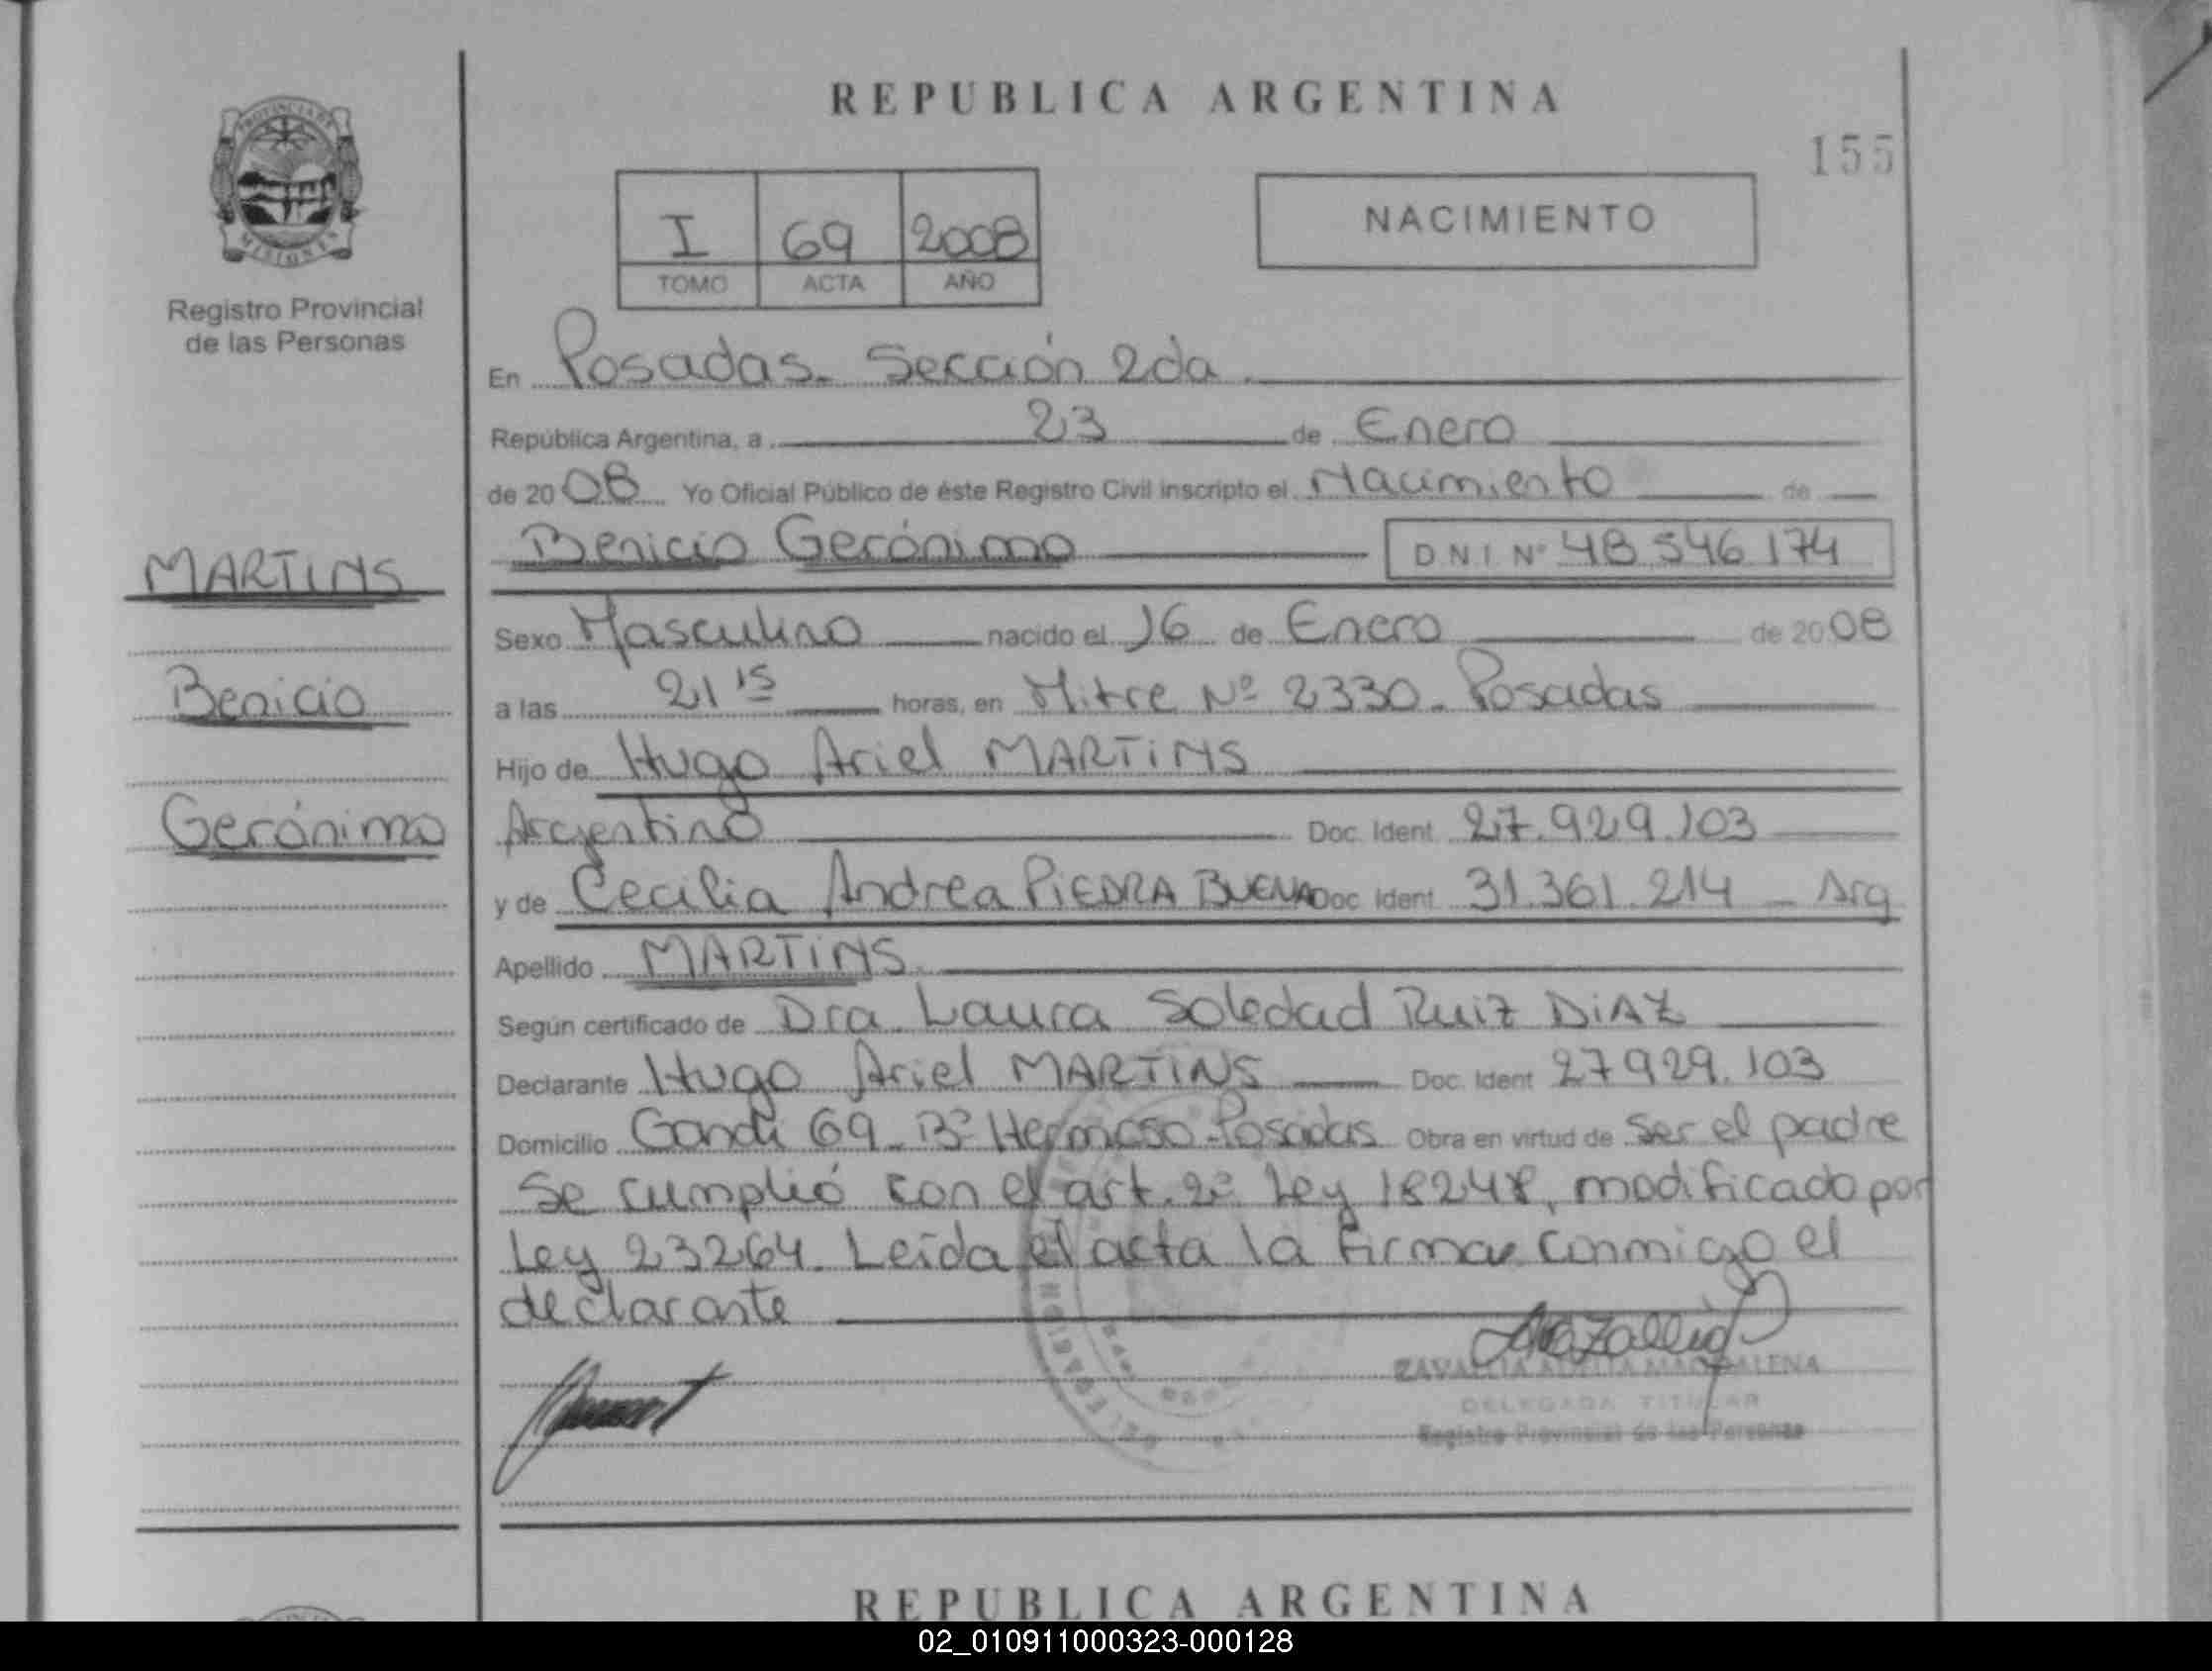 REPUBLICA ARGENTINA
155
PROVINCIA DE
MISIONES
Registro Provincial
de las Personas
I 69 2008
TOMO ACTA AÑO
NACIMIENTO
En Posadas. Sección 2da.
República Argentina, a 23 de Enero
de 2008 Yo Oficial Público de éste Registro Civil inscripto el Nacimiento de
Benicio Gerónimo DNI Nº 48 546 174
MARTINS
Benicio
Gerónimo
Sexo Masculino nacido el 16 de Enero de 2008
a las 21 15 horas, en Mitre Nº 2330. Posadas
Hijo de Hugo Ariel MARTiNS
Argentino Doc. Ident 27.929.103
y de Cecilia Andrea PiEDRA BUENA Doc Ident 31.361.214 - Arg
Apellido MARTiNS.
Según certificado de Dra. Laura Soledad Ruiz DiAZ
Declarante Hugo Ariel MARTiNS Doc. Ident 27929.103
Domicilio Gandi 69 - Bº Hermoso - Posadas Obra en virtud de ser el padre
Se cumplió con el art. 2º Ley 18248, modificado por
Ley 23264. Leída el acta la firma conmigo el
declarante
ZAVALLIA ADELTA MAGDALENA
DELEGADA TITULAR
Registro Provincial de las Personas
REPUBLICA ARGENTINA
02_010911000323-000128